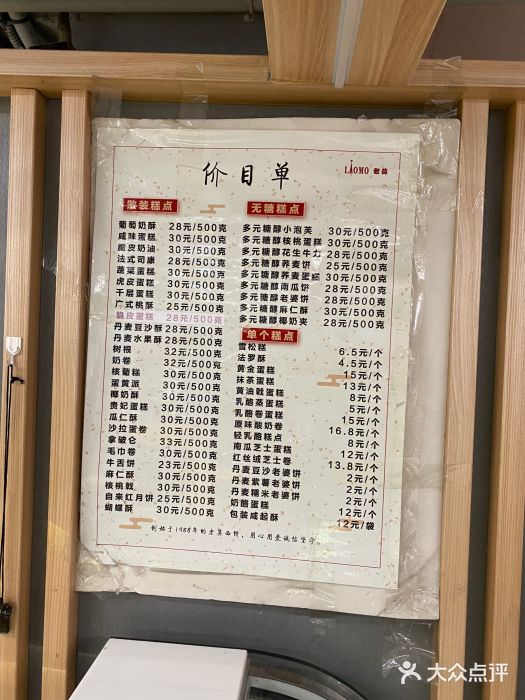 价目单
LAOMO 老莫
散装糕点
葡萄奶酥 28元/500克
咸味蛋糕 30元/500克
脆皮奶油 30元/500克
法式司康 28元/500克
蔬菜蛋糕 30元/500克
虎皮蛋糕 30元/500克
千层蛋糕 30元/500克
广式桃酥 25元/500克
脆皮蛋糕 28元/500克
丹麦豆沙酥 28元/500克
丹麦水果酥 28元/500克
树根 32元/500克
奶卷 32元/500克
核葡糕 30元/500克
蛋黄派 30元/500克
椰奶酥 30元/500克
贵妃蛋糕 30元/500克
瓜仁酥 30元/500克
沙拉蛋卷 30元/500克
拿破仑 33元/500克
毛巾卷 30元/500克
牛舌饼 23元/500克
麻仁酥 30元/500克
核桃戟 30元/500克
自来红月饼 25元/500克
蝴蝶酥 30元/500克
无糖糕点
多元糖醇小泡芙 30元/500克
多元糖醇核桃蛋糕 30元/500克
多元糖醇花生牛力 30元/500克
多元糖醇荞麦饼 25元/500克
多元糖醇荞麦蛋糕 30元/500克
多元糖醇南瓜饼 28元/500克
多元糖醇老婆饼 28元/500克
多元糖醇麻仁酥 30元/500克
多元糖醇椰奶夹 28元/500克
单个糕点
雪松糕 6.5元/个
法罗酥 4.5元/个
黄金蛋糕 15元/个
抹茶蛋糕 13元/个
黄油戟蛋糕 8元/个
乳酪蒸蛋糕 5元/个
乳酪卷蛋糕 15元/个
原味酸奶卷 16.8元/个
轻乳酪糕点 8元/个
南瓜芝士蛋糕 12元/个
红丝绒芝士卷 13.8元/个
丹麦豆沙老婆饼 2元/个
丹麦紫薯老婆饼 2元/个
丹麦糯米老婆饼 2元/个
奶酪蛋糕 12元/个
包装咸起酥 12元/袋
创始于1988年的老莫西饼，用心用爱诚信坚守。
大众点评